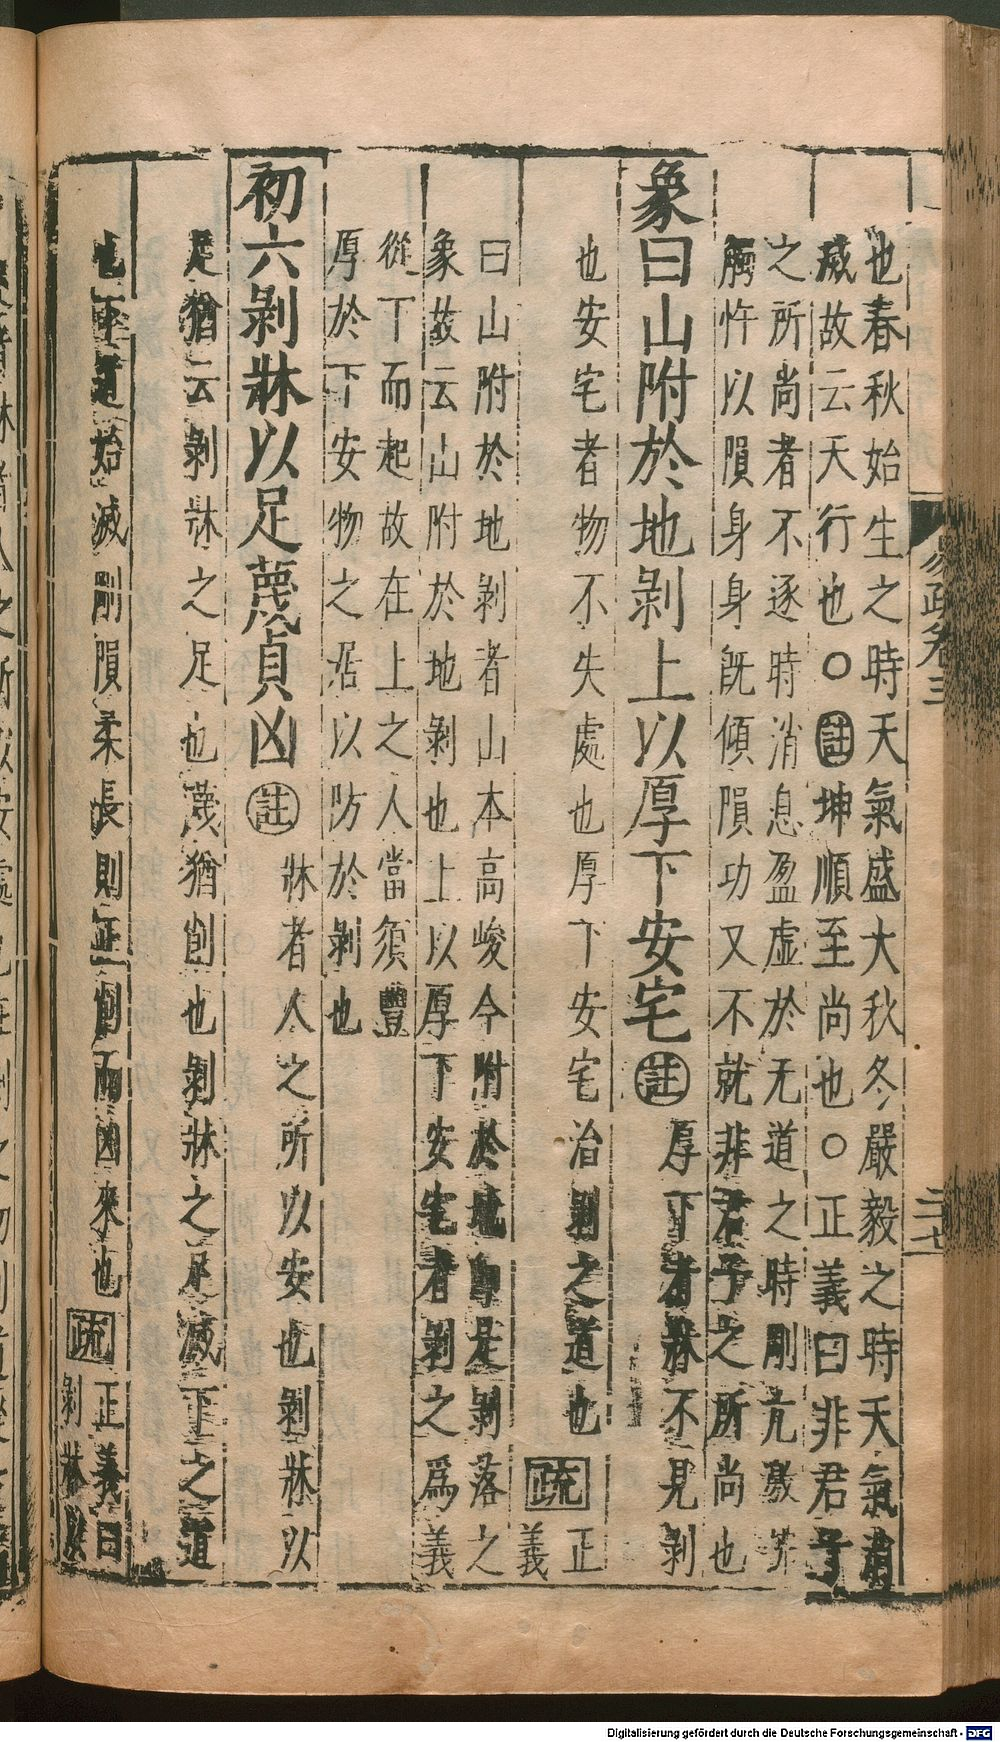 易疏卷三
二十七
也春秋始生之時天氣盛大秋冬嚴毅之時天氣消
滅故云天行也〇註坤順至尚也〇正義曰非君子
之所尚者不逐時消息盈虛於无道之時剛亢激
觸忤以隕身身旣傾隕功又不就非君子之所尚也
象曰山附於地剥上以厚下安宅註
厚下者牀不見剥
也安宅者物不失處也厚下安宅治剥之道也
疏
正
義
曰山附於地剥者山本高峻今附於地即是剥落之
象故云山附於地剥也上以厚下安宅者剥之爲義
從下而起故在上之人當須豐
厚於下安物之居以防於剥也
初六剥牀以足蔑貞凶註
牀者人之所以安也剥牀以
足猶云剥牀之足也蔑猶削也剥牀之足滅下之道
也下道始滅剛隕柔長則正削而凶來也
疏
正義曰
剥牀以
Digitalisierung gefördert durch die Deutsche Forschungsgemeinschaft - DFG